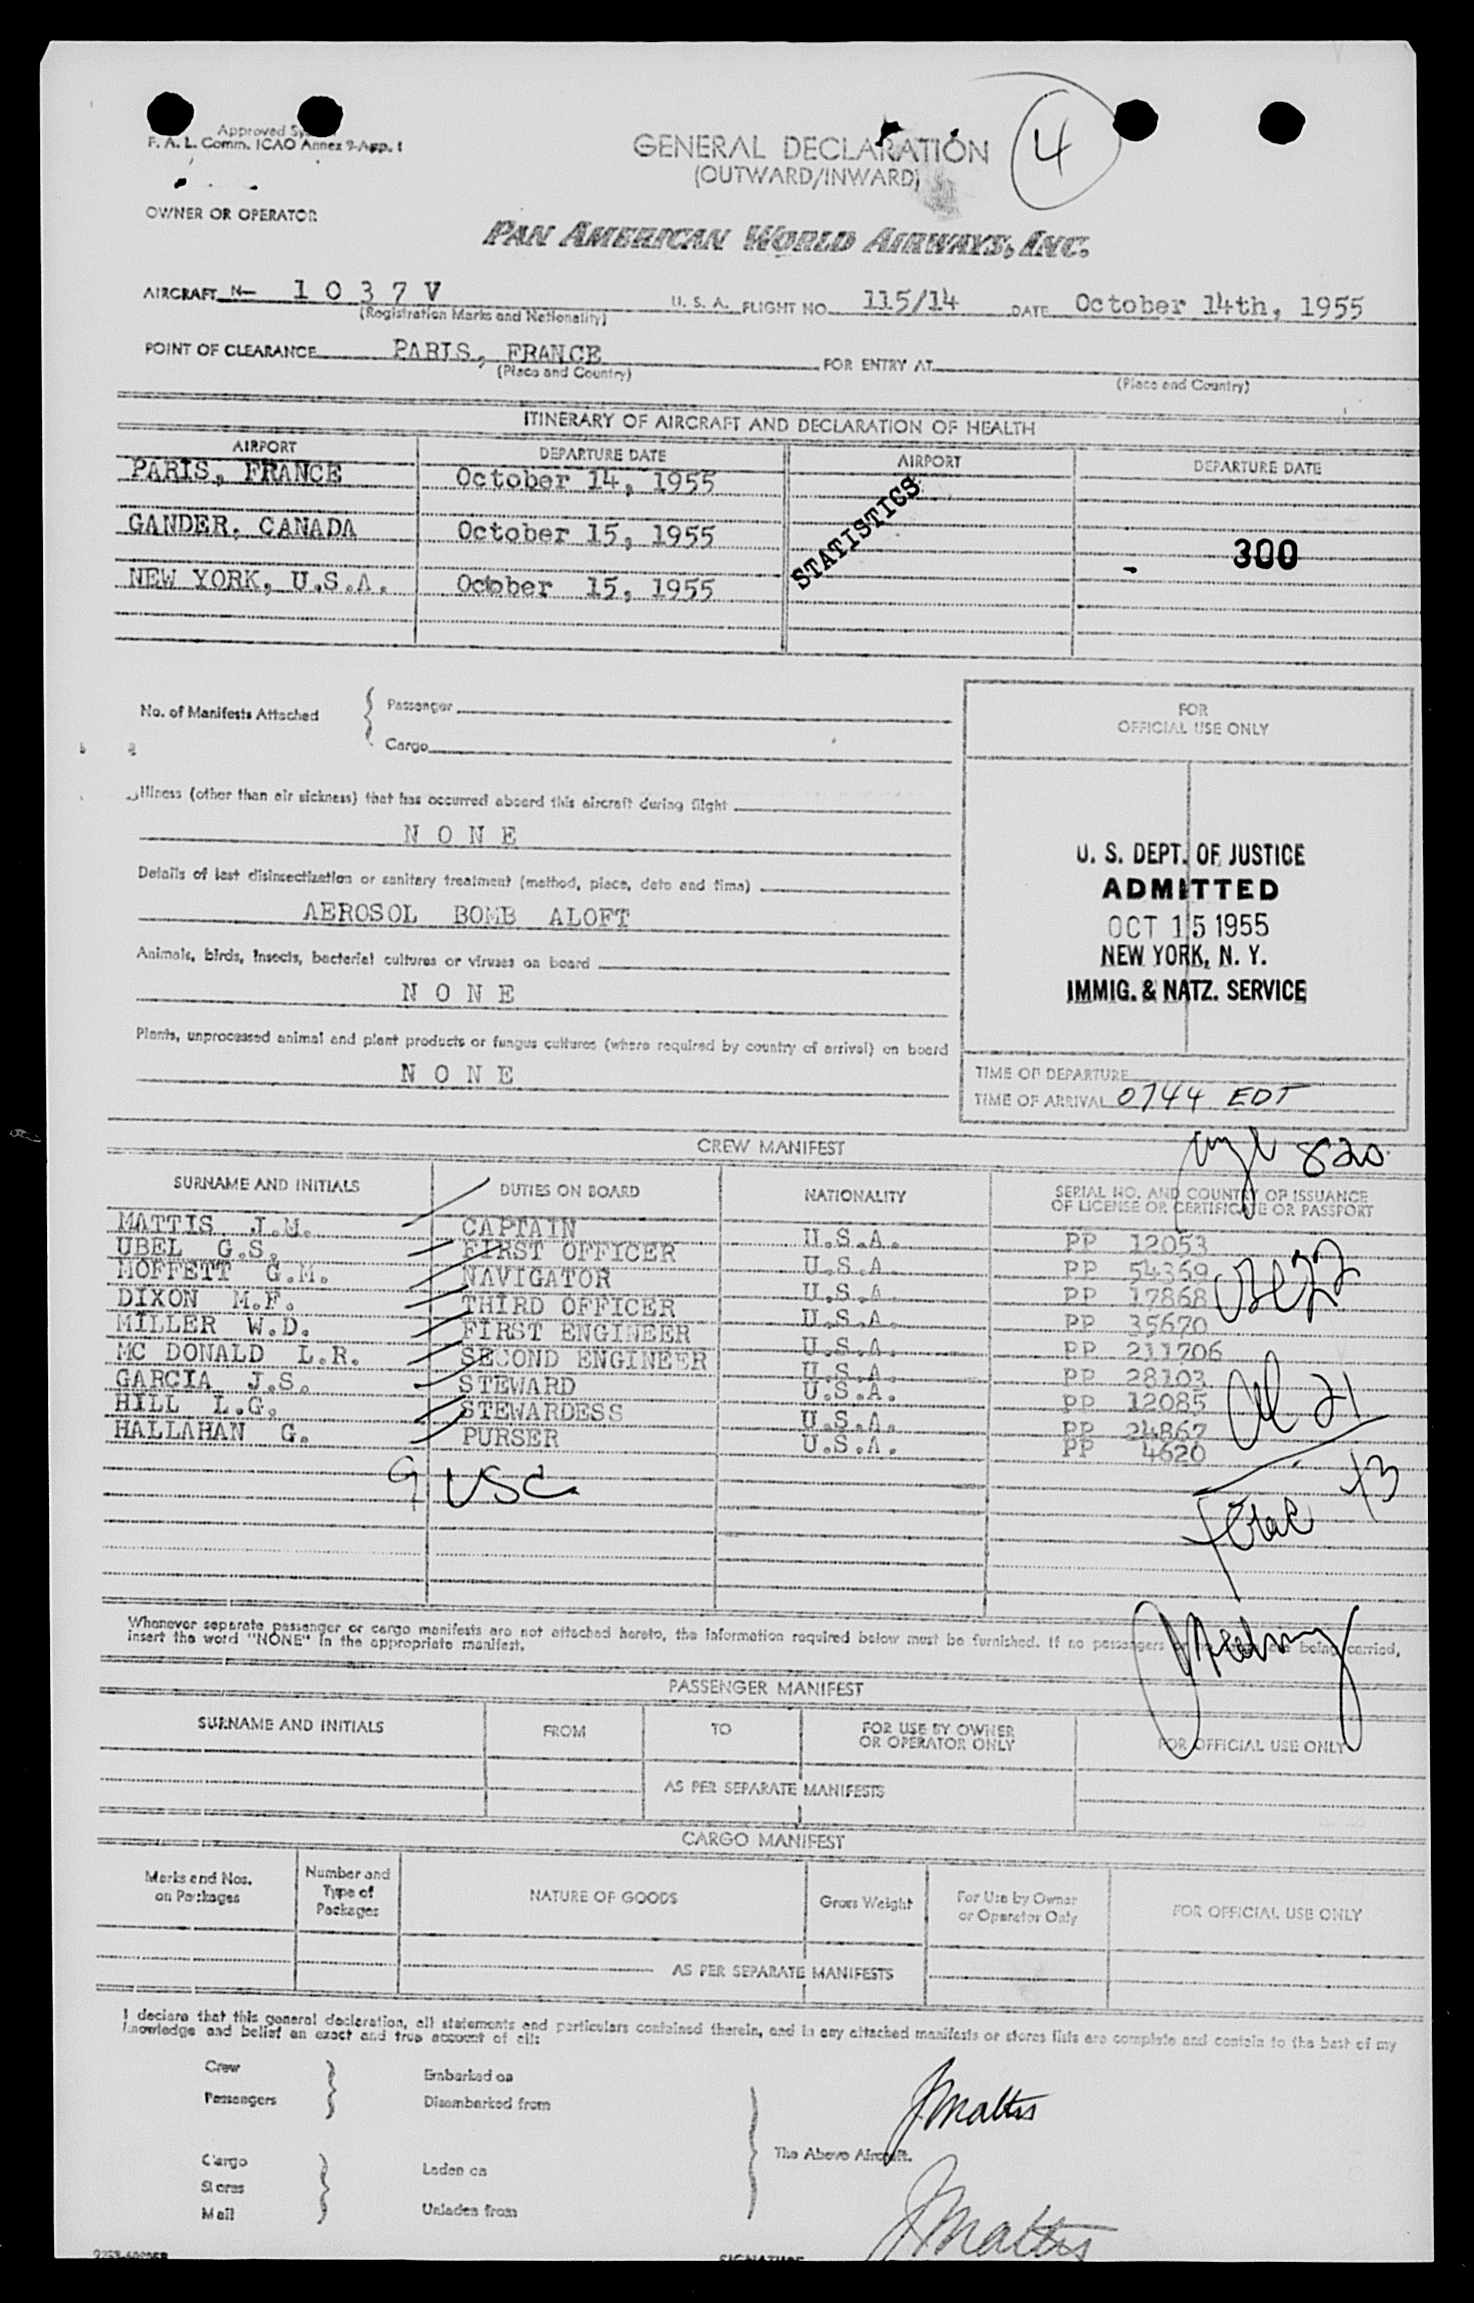 4
Approved
F. A. L. Comm. ICAO Annex 9-App. 1
GENERAL DECLARATION
(OUTWARD/INWARD)
OWNER OR OPERATOR
PAN AMERICAN WORLD AIRWAYS, INC.
AIRCRAFT N- 1 0 3 7 V U. S. A. FLIGHT NO. 115/14 DATE October 14th, 1955
(Registration Marks and Nationality)
POINT OF CLEARANCE PARIS, FRANCE FOR ENTRY AT
(Place and Country) (Place and Country)
ITINERARY OF AIRCRAFT AND DECLARATION OF HEALTH
AIRPORT DEPARTURE DATE AIRPORT DEPARTURE DATE
PARIS, FRANCE October 14, 1955
STATISTICS
GANDER. CANADA October 15, 1955
300
NEW YORK, U.S.A. October 15, 1955
No. of Manifests Attached Passenger
Cargo
FOR
OFFICIAL USE ONLY
Illness (other than air sickness) that has occurred aboard this aircraft during flight
N O N E
Details of last disinsectization or sanitary treatment (method, place, date and time)
AEROSOL BOMB ALOFT
Animals, birds, insects, bacterial cultures or viruses on board
N O N E
Plants, unprocessed animal and plant products or fungus cultures (where required by country of arrival) on board
N O N E
U. S. DEPT. OF JUSTICE
ADMITTED
OCT 15 1955
NEW YORK, N. Y.
IMMIG. & NATZ. SERVICE
TIME OF DEPARTURE
TIME OF ARRIVAL 0744 EDT
820
CREW MANIFEST
SURNAME AND INITIALS DUTIES ON BOARD NATIONALITY SERIAL NO. AND COUNTRY OF ISSUANCE
OF LICENSE OR CERTIFICATE OR PASSPORT
MATTIS J.M. CAPTAIN U.S.A. PP 12053
UBEL G.S. FIRST OFFICER U.S.A. PP 54369
MOFFETT G.M. NAVIGATOR U.S.A. PP 17868
DIXON M.F. THIRD OFFICER U.S.A. PP 35670
MILLER W.D. FIRST ENGINEER U.S.A. PP 211706
MC DONALD L.R. SECOND ENGINEER U.S.A. PP 28103
GARCIA J.S. STEWARD U.S.A. PP 12085
HILL L.G. STEWARDESS U.S.A. PP 24867
HALLAHAN G. PURSER U.S.A. PP 4620
22
21
9 USC
43
Whenever separate passenger or cargo manifests are not attached hereto, the information required below must be furnished. If no passengers being carried,
insert the word "NONE" in the appropriate manifest.
PASSENGER MANIFEST
SURNAME AND INITIALS FROM TO FOR USE BY OWNER
OR OPERATOR ONLY FOR OFFICIAL USE ONLY
AS PER SEPARATE MANIFESTS
CARGO MANIFEST
Marks and Nos.
on Packages Number and
Type of
Packages NATURE OF GOODS Gross Weight For Use by Owner
or Operator Only FOR OFFICIAL USE ONLY
AS PER SEPARATE MANIFESTS
I declare that this general declaration, all statements and particulars contained therein, and in any attached manifests or stores lists are complete and contain to the best of my
knowledge and belief an exact and true account of all:
Crew Embarked on
Passengers Disembarked from
JMattis
The Above Aircraft.
Cargo Laden on
Stores
Mail Unladen from
JMattis
SIGNATURE